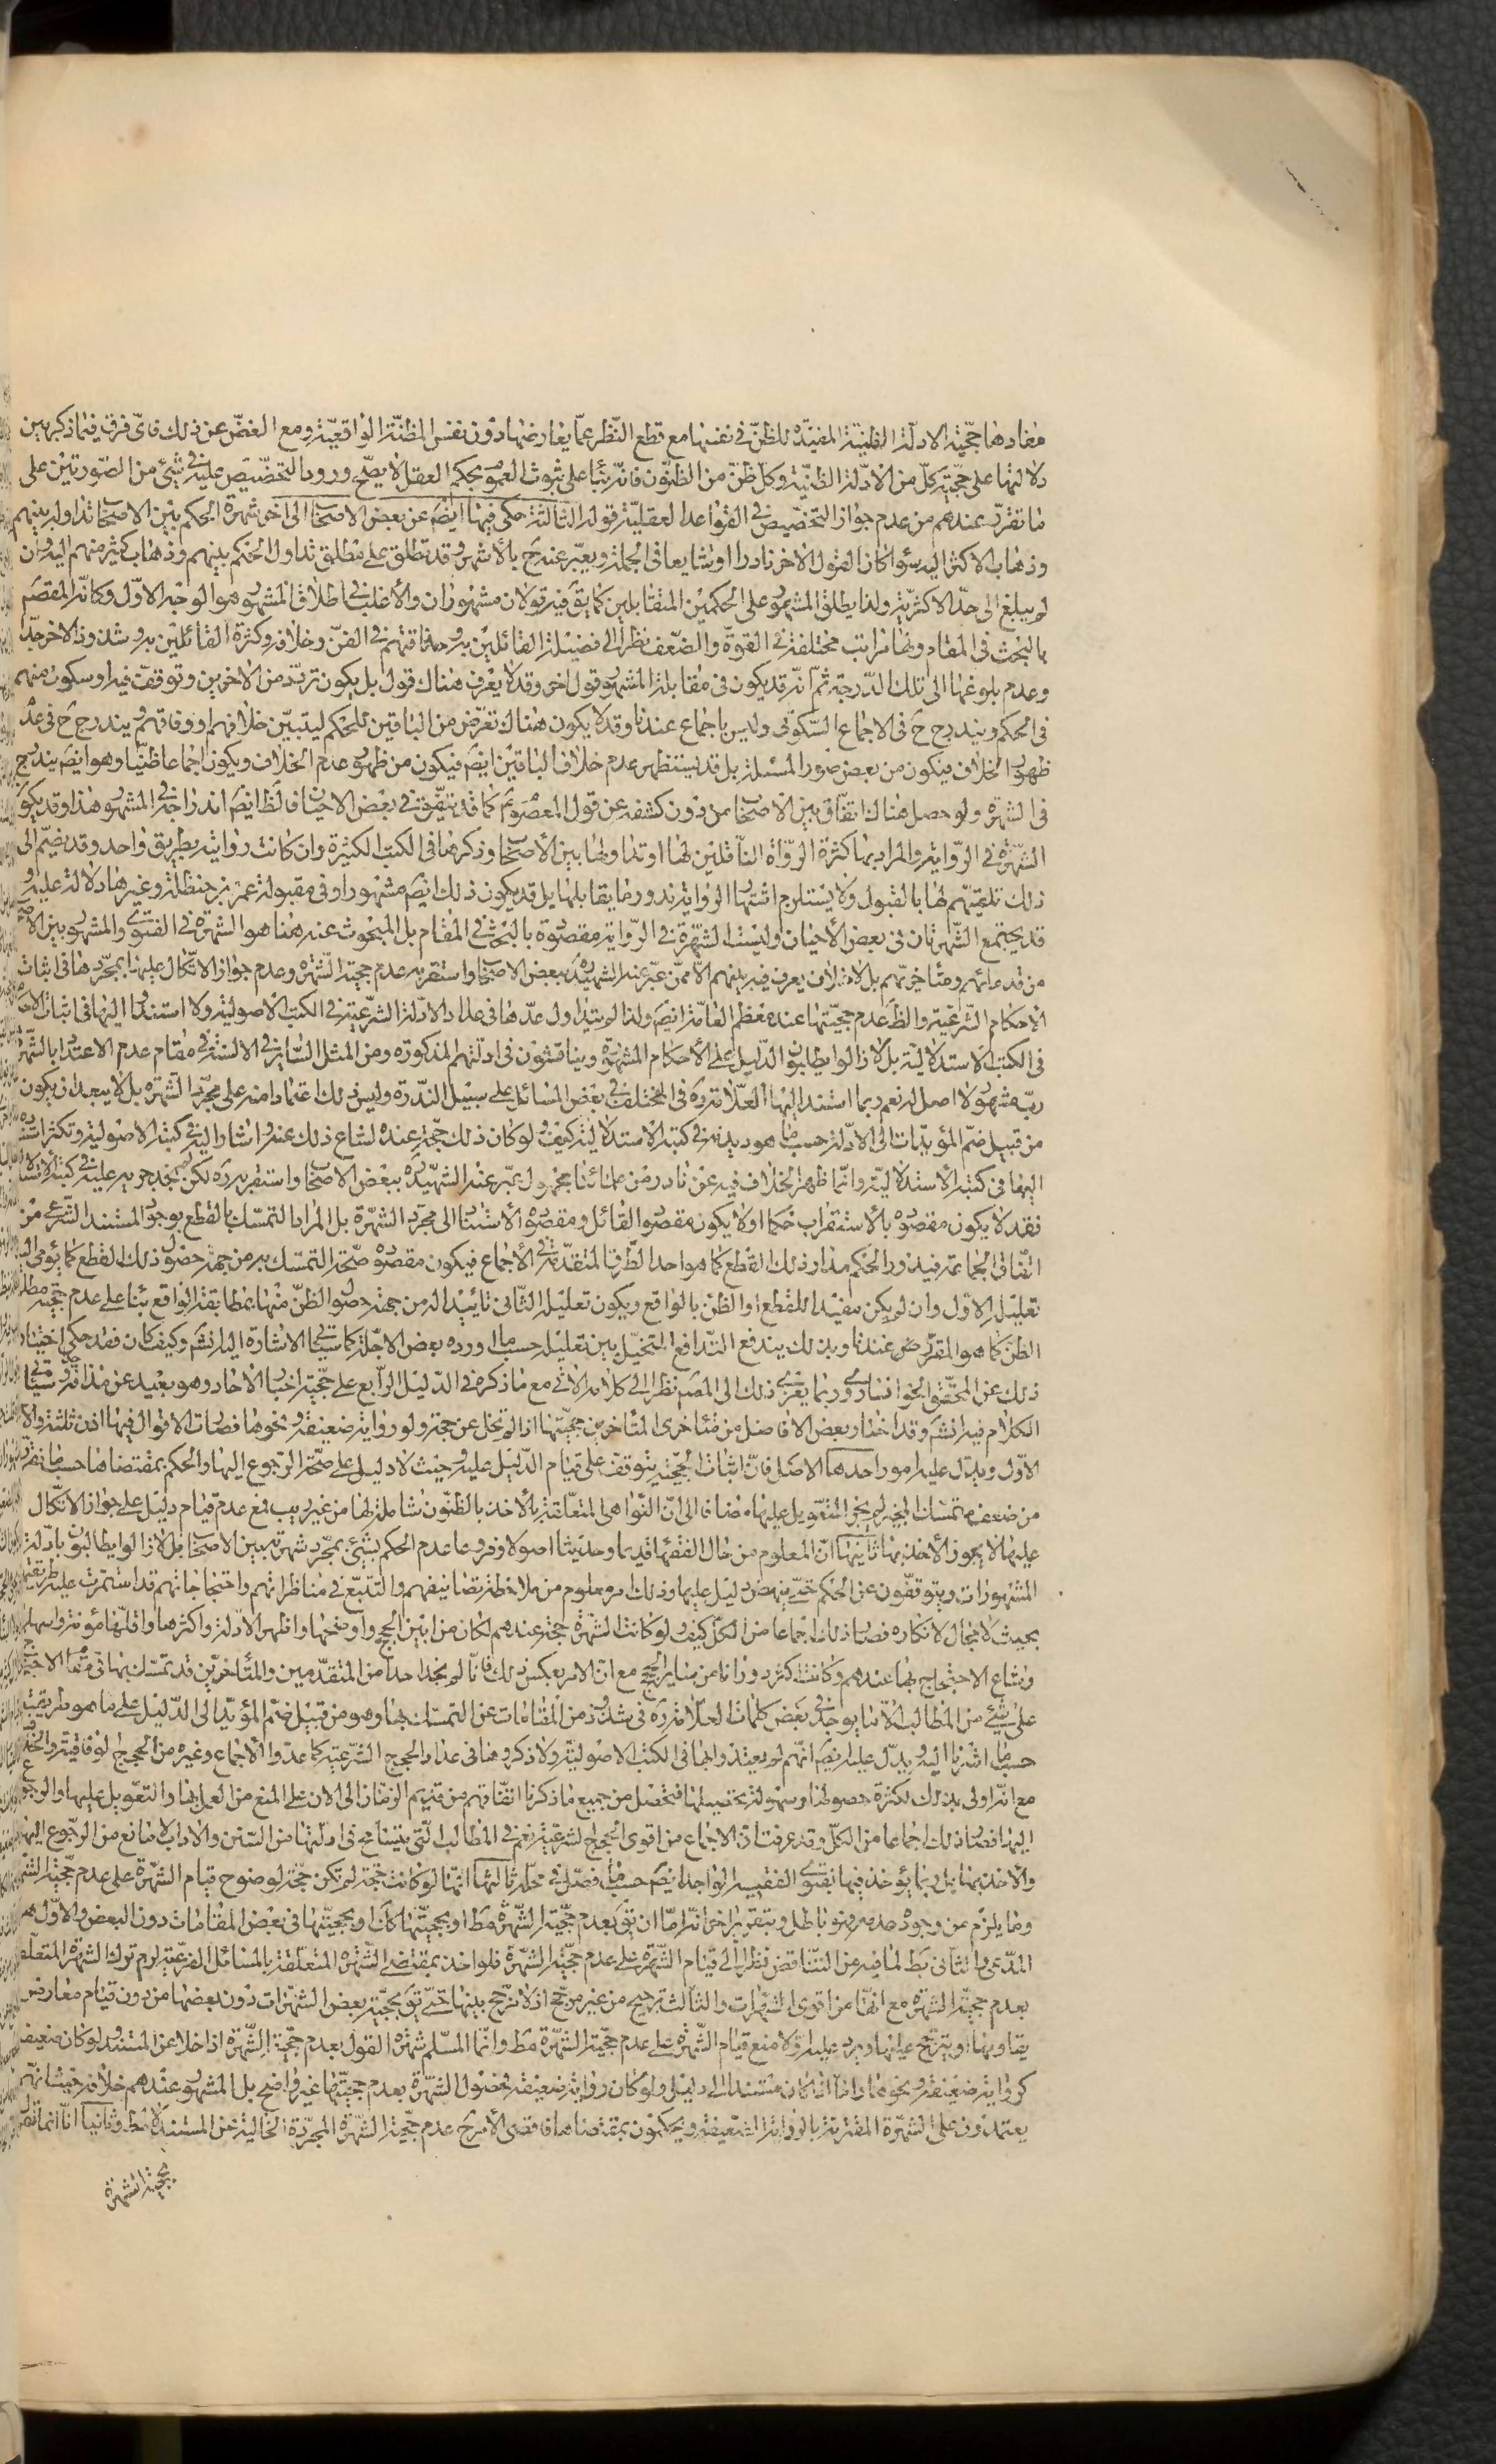 مفادها حجية الادلة الظنية المفيدة للظن في نفسها مع قطع النظر عما يعارضها دون نفس المظنة الواقعية ومع الغض عن ذلك فاى فرق فيما ذكر بين
دلالتها على حجية كل من الادلة الظنية وكل ظن من الظنون فانه بناء على ثبوت العموم بحكم العقل لا يصلح ورود التخصيص عليه في شيئ من الصورتين على
ما تقرر عندهم من عدم جواز التخصيص في القواعد العقلية قوله الثالثة حكى فيها ايضم عن بعض الاصحاب الى اخره شهرة الحكم بين الاصحاب تداوله بينهم
وذهاب الاكثر اليه سواء كان القول الاخر نادرا او شايعا في الجملة ويعبر عنه ح بالأشهر وقد تطلق على مطلق تداول الحكم بينهم وذهاب كثير منهم اليه وان
لم يبلغ الى حد الاكثرية ولذا يطلق المشهور على الحكمين المتقابلين كما يق فيه قولان مشهوران والأغلب في اطلاق المشهور هو الوجه الاول وكانه المقصم
بالبحث في المقام ولها مراتب مختلفة في القوة والضعف نظرا الى فضيلة القائلين به وحذاقتهم في الفن وخلافه وكثرة القائلين به وشذوذ الاخر جدا
وعدم بلوغها الى تلك الدرجة ثم انه قد يكون في مقابلة المشهور قول اخر وقد لا يعرف هناك قول بل يكون تردد من الاخرين وتوقف فيه او سكوت منهم
في الحكم ويندرج ح في الاجماع السكوتى وليس باجماع عندنا وقد لا يكون هناك تعرض من الباقين للحكم ليتبين خلافهم او وفاقهم ويندرج ح في عدم
ظهور الخلاف فيكون من بعض صور المسئلة بل قد يستظهر عدم خلاف الباقين ايضم فيكون من ظهور عدم الخلاف ويكون اجماعا ظنيا وهو ايضم يندرج
في الشهرة ولو حصل هناك اتفاق بين الاصحاب من دون كشفه عن قول المعصوم كما قد يتفق في بعض الاحيان فالظ ايضم اندراجه في المشهور هذا وقد يكون
الشهرة في الرواية والمراد بها كثرة الرواة الناقلين لها او تداولها بين الأصحاب وذكرها في الكتب الكثيرة وان كانت روايته بطريق واحد وقد يضم الى
ذلك تلقيهم لها بالقبول ولا يستلزم اشتهار الرواية ندور ما يقابلها بل قد يكون ذلك ايضم مشهورا وفي مقبولة عمر بن حنظلة وغيرها دلالة عليه و
قد يجتمع الشهرتان في بعض الأحيان وليست الشهرة في الرواية مقصودة بالبحث في المقام بل المبحوث عنه ههنا هو الشهرة في الفتوى والمشهور بين الاصحاب
من قدمائهم ومتأخريهم بل لا خلاف يعرف فيه بينهم الا ممن عبر عنه الشهيد ره ببعض الاصحاب واستقر به عدم حجية الشهرة وعدم جواز الاتكال عليها بمجردها في اثبات
الأحكام الشرعية والظ عدم حجيتها عند معظم العامة ايضم ولذا لم يتداول عدها في عداد الادلة الشرعية في الكتب الاصولية ولا استندوا اليها في اثبات الاحكام
في الكتب الاستدلالية بل لا زالوا يطالبون الدليل على الأحكام المشهورة ويناقشون في ادلتهم المذكورة ومن المثل السائر في الالسنة في مقام عدم الاعتداد بالشهرة
رب مشهور لا اصل له نعم ربما استند اليها العلامة ره في المختلف في بعض المسائل على سبيل الندرة وليس ذلك اعتمادا منه على مجرد الشهرة بل لا يبعد ان يكون
من قبيل ضم المؤيدات الى الادلة حسب ما هو ديدنه في كتبه الاستدلالية كيف ولو كان ذلك حجة عنده لشاع ذلك عنه واشار اليه في كتبه الاصولية وتكثر استناده
اليها في كتبه الأستدلالية وانما ظهر الخلاف فيه عن نادر من علمائنا مجهول عبر عنه الشهيد ره ببعض الاصحاب واستقر به ره لكن لم نجد جريه عليه في كتبه الاستدلالية
فقد لا يكون مقصوده بالأستقراب حكما اولا يكون مقصود القائل ومقصوده الأستناد الى مجرد الشهرة بل المراد التمسك بالقطع بوجود المستند الشرعى من
اتفاق الجماعة فيدور الحكم مدار ذلك القطع كما هو احد الطرق المتقدمة في الأجماع فيكون مقصوده صحة التمسك به من جهة حصول ذلك القطع كما يؤمى اليه
تعليله الاول وان لم يكن مفيدا للقطع او الظن بالواقع ويكون تعليله الثانى تأييدا له من جهة حصول الظن منها بمطابقة الواقع بناء على عدم حجية مطلق
الظن كما هو المقرر عندنا وبذلك يندفع التدافع المتخيل بين تعليليه حسب ما اورده بعض الاجلة كما سيجئ الاشارة اليه انشم وكيف كان فقد حكى اختيار
ذلك عن المحقق الخوانسارى وربما يعزى ذلك الى المصم نظرا الى كلامه الاتى مع ما ذكره في الدليل الرابع على حجية اخبار الاحاد وهو بعيد عن مذاقه جدا وسيأتي
الكلام فيه انشم وقد اختار بعض الافاضل من متأخرى المتأخرين حجيتها اذا لم تخل عن حجة ولو رواية ضعيفة ونحوها فصارت الاقوال فيها اذن ثلثة والا
الاول ويدل عليه امور احدها الاصل فان اثبات الحجية يتوقف على قيام الدليل عليه وحيث لا دليل على صحة الرجوع اليها والحكم بمقتضاها حسب ما تقرر
من ضعف متمسك المجيز لم يجز التعويل عليها مضافا الى ان النواهى المتعلقة بالأخذ بالظنون شاملة لها من غير ريب فمع عدم قيام دليل على جواز الاتكال
عليها لا يجوز الأخذ بها ثانيها ان المعلوم من حال الفقهاء قديما وحديثا اصولا وفروعا عدم الحكم بشيئ بمجرد شهرته بين الاصحاب بل لا زالوا يطالبون بادلة
المشهورات ويتوقفون عن الحكم حتى ينهض دليل عليها وذلك امر معلوم من ملاحظة تصانيفهم والتتبع في مناظراتهم واحتجاجاتهم قد استمرت عليه طريقتهم
بحيث لا مجال لانكاره فصار ذلك اجماعا من الكل كيف ولو كانت الشهرة حجة عندهم لكان من ابين الحجج واوضحها واظهر الادلة واكثرها واقلها مؤنة واسهلها
وشاع الاحتجاج بها عندهم وكانت اكثر دورانا من ساير الحجج مع ان الامر بعكس ذلك فانا لم نجد احدا من المتقدمين والمتأخرين قد تمسك بها في مقام الاحتجاج
على شيئ من المطالب الا ما يوجد في بعض كلمات العلامة ره في شذوذ من المقامات عن التمسك بها وهو من قبيل ضم المؤيد الى الدليل على ما هو طريقته
حسب ما اشرنا اليه ويدل عليه ايضم انهم لم يعتدوا بها في الكتب الاصولية ولا ذكروها في عداد الحجج الشرعية كما عدوا الأجماع وغيره من الحجج الوفاقية والخلافية
مع انه اولى بذلك لكثرة حصولها وسهولة تحصيلها فتحصل من جميع ما ذكرنا اتفاقهم من قديم الزمان الى الان على المنع من العمل بها والتعويل عليها والرجوع
اليها فصار ذلك اجماعا من الكل وقد عرفت ان الاجماع من اقوى الحجج الشرعية نعم في المطالب التى يتسامح في ادلتها من السنن والاداب لا مانع من الرجوع اليها
والأخذ بها بل ربما يؤخذ فيها بفتوى الفقيه الواحد ايضم حسب ما فصل في محله ثالثها انها لو كانت حجة لم تكن حجة لوضوح قيام الشهرة على عدم حجية الشهرة
وما يلزم من وجوده عدمه فهو باطل وبتقرير اخر انه اما ان تق بعدم حجية الشهرة مط او بحجيتها كك او بحجيتها في بعض المقامات دون البعض والاول هو
المدعى والثانى بط لما فيه عن التناقض نظرا الى قيام الشهرة على عدم حجية الشهرة فلو اخذ بمقتضى الشهرة المتعلقة بالمسائل الفرعية لزم ترك الشهرة المتعلقة
بعدم حجية الشهرة مع انها من اقوى الشهرات والثالث ترجيح من غير مرجح اذ لا ترجيح بينها حتى يق بحجية بعض الشهرات دون بعضها من دون قيام معارض
يقاومها او يترجح عليها ويرد عليه اولا منع قيام الشهرة على عدم حجية الشهرة مط وانما المسلم شهرة القول بعدم حجية الشهرة اذا خلا عن المستند ولو كان ضعيفا
كرواية ضعيفة ونحوها واما اذا كان مستندا الى دليل ولو كان رواية ضعيفة فحصول الشهرة بعدم حجيتها غير واضح بل المشهور عندهم خلافه حيث انهم
يعتمدون على الشهرة المقترنة بالرواية الضعيفة ويحكمون بمقتضاها فاقصى الأمر ح عدم حجية الشهرة المجردة الخالية عن المستند لا مط وثانيا انا انما نقول
بحجية الشهرة